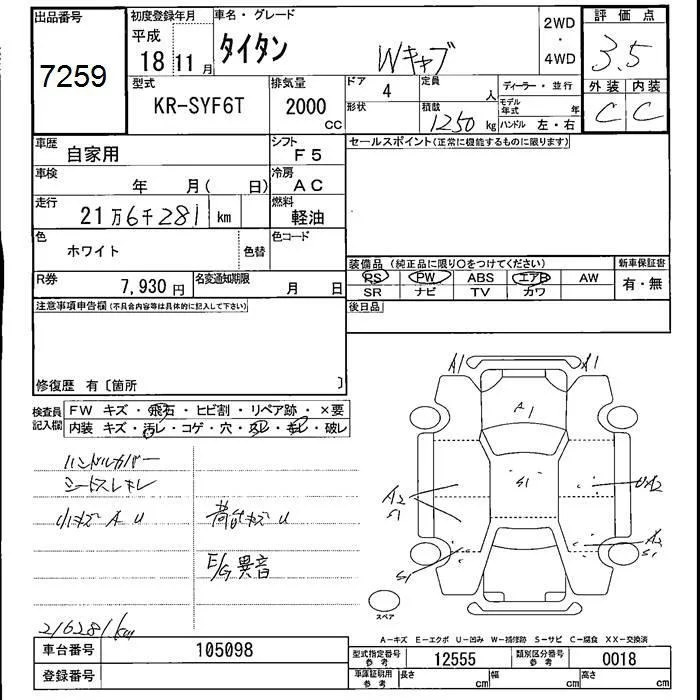 出品番号
7259
初度登録年月
平成
18 11 月
車名・グレード
タイタン
Wキャブ
2WD
・
4WD
評価点
3.5
外装 内装
C C
型式
KR-SYF6T
排気量
2000
CC
ドア
4
形状
定員
人
積載
1250 kg
ディーラー・並行
モデル年式 年
ハンドル 左・右
車歴
自家用
シフト
F5
セールスポイント(正常に機能するものに限ります)
車検
年 月( 日)
冷房
AC
走行
21万6千281 km
燃料
軽油
色
ホワイト
色替
色コード
R券
7,930 円
名変通知期限
月 日
装備品 (純正品に限り○をつけてください)
PS PW ABS エアB AW
SR ナビ TV カワ
新車保証書
有・無
注意事項申告欄(不具合内容等は具体的に記入して下さい)
後日品
修復歴 有〔箇所 〕
検査員
記入欄
FW キズ・飛石・ヒビ割・リペア跡・×要
内装 キズ・汚レ・コゲ・穴・スレ・キレ・破レ
ハンドルカバー
シートスレキレ
小キズ A U
荷台キズ U
E/G異音
216281km
A1 A1
A1
S1
A2
S1
UA2
A2
S1
S1
スペア
A-キズ E-エクボ U-凹み W-補修跡 S-サビ C-腐食 XX-交換済
車台番号
105098
登録番号
型式指定番号
参考
12555
類別区分番号
参考
0018
車庫証明用
参考
長さ cm
幅 cm
高さ cm